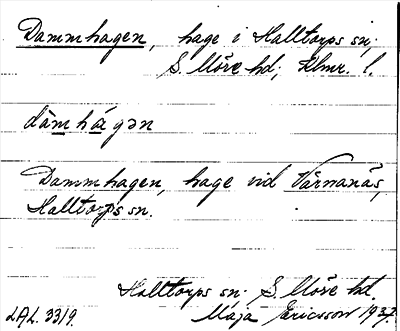 Dammhagen, hage i Halltorps sn;
S. Möre hd; Klmr. l.
dàmhágən
Dammhagen, hage vid Värnanäs,
Halltorps sn.
Halltorps sn. S. Möre hd.
LAL. 3319. Maja Ericsson